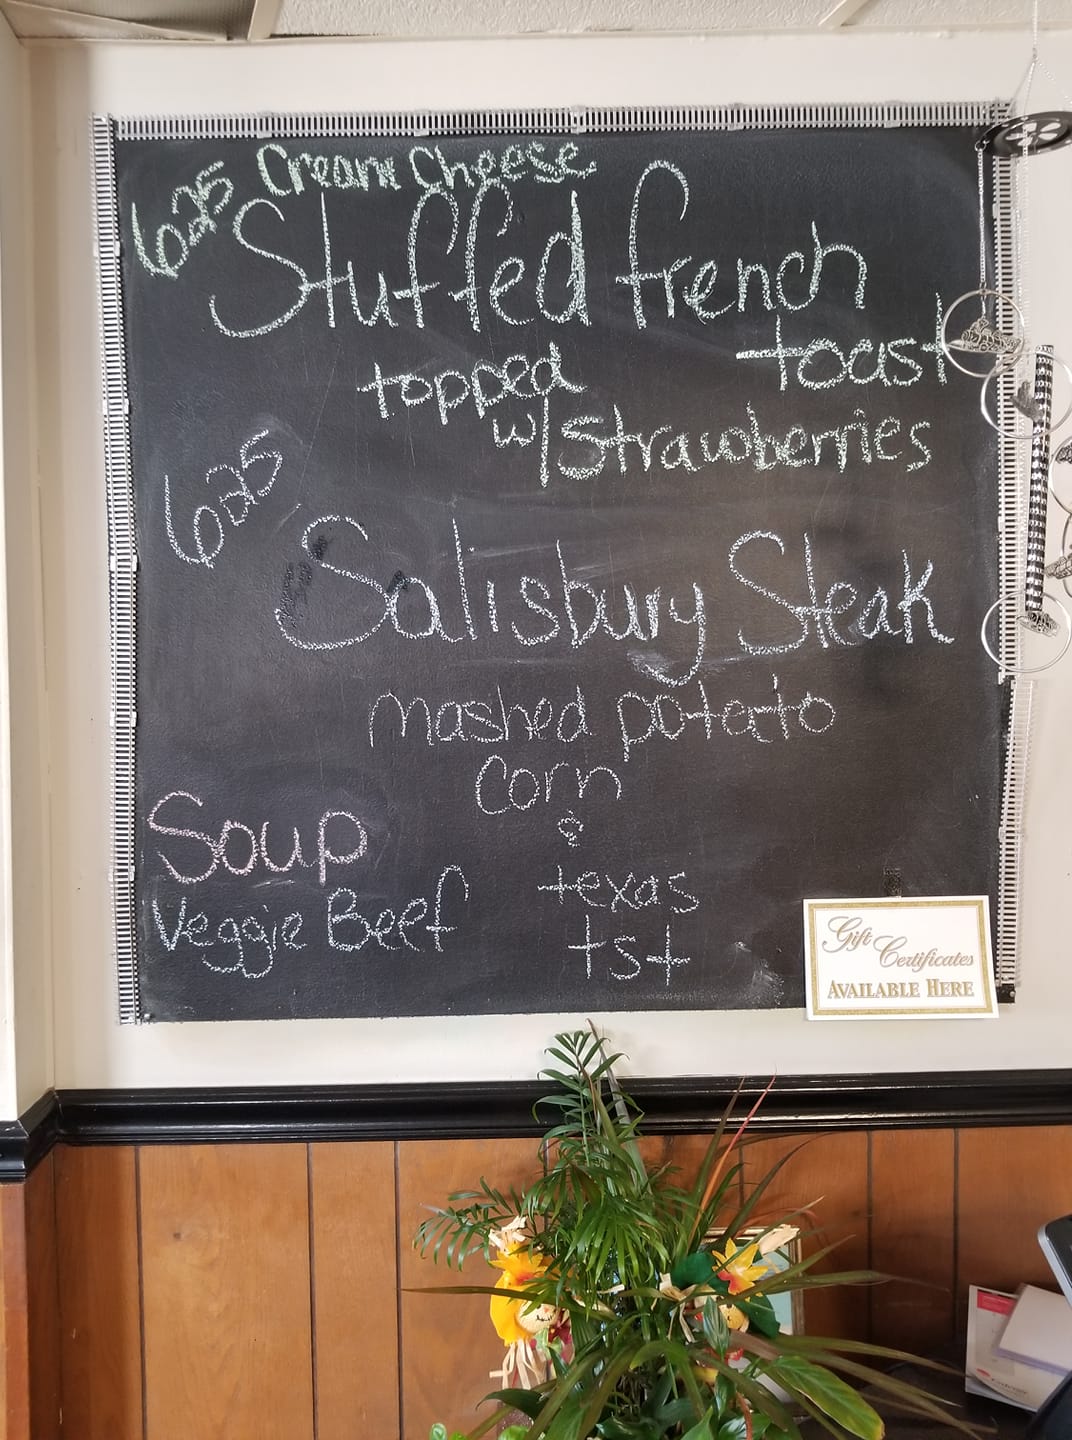 625 Cream Cheese
Stuffed french
toast
topped
w/ Strawberries
625
Salisbury Steak
mashed potato
corn
&
texas
tst
Soup
Veggie Beef
Gift
Certificates
AVAILABLE HERE